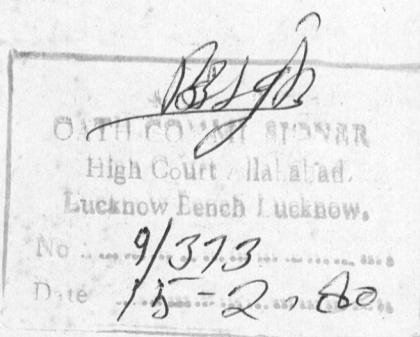 OATH COMMISSIONER
High Court Allahabad,
Lucknow Bench Lucknow.
No 9/373
Date 15-2.80